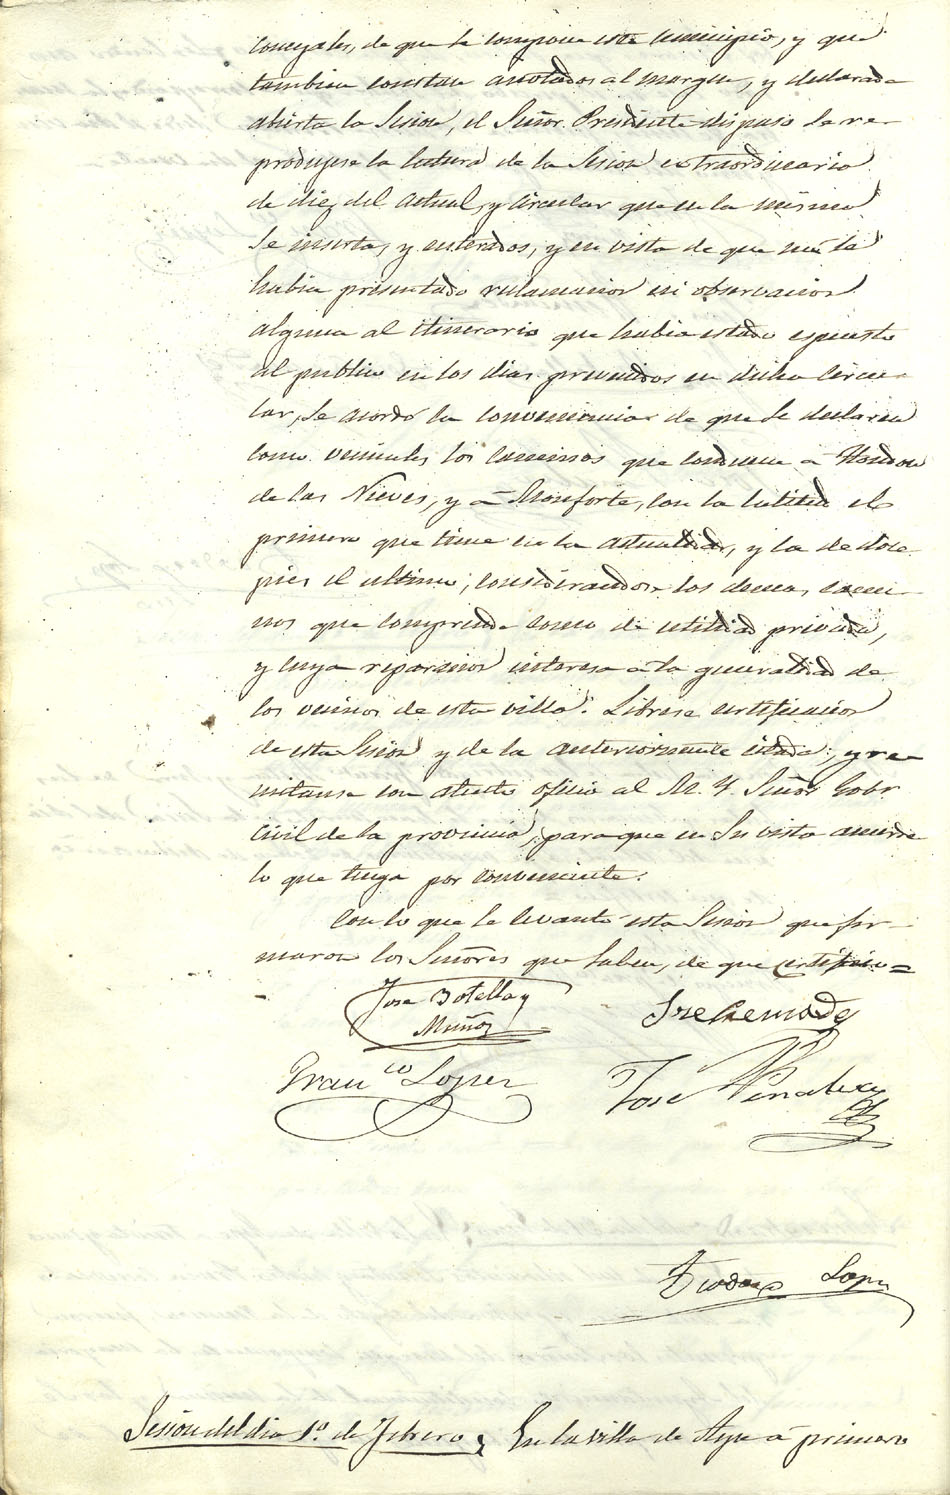 Concejales, de que se compone este municipio, y que
tambien constan anotados al margen, y declarada
abierta la Sesion, el Señor Presidente dispuso se re-
produjese la lectura de la Sesion extraordinaria
de diez del actual, y circular que en la misma
se inserta, y enterados, y en vista de que no se
habia presentado reclamacion ni observacion
alguna al itinerario que habia estado espuesto
al publico en los dias prevenidos en dicha circu-
lar, se acordó la conveniencia de que se declaren
como vecinales los caminos que conducen a Hondon
de las Nieves, y a Monforte, con la latitud el
primero que tiene en la actualidad, y la de doce
pies el ultimo, considerandose los demas cami-
nos que comprende como de utilidad privada,
y cuya reparacion interesa a la generalidad de
los vecinos de esta villa. Librese certificacion
de esta Sesion y de la anteriormente citada, y re-
mitanse con atento oficio al M. Y. Señor Gobr.
Civil de la provincia, para que en su vista acuerde
lo que tenga por conveniente.
Con lo que se levantó esta Sesion que fir-
maron los Señores que saben, de que certifico =
Jose Botella y
Muñoz
Jse Cremades
Franco. Lopez
José Penalva
Teodoro Lopez
Sesion del dia 1o. de Febrero, En la villa de Aspe a primero